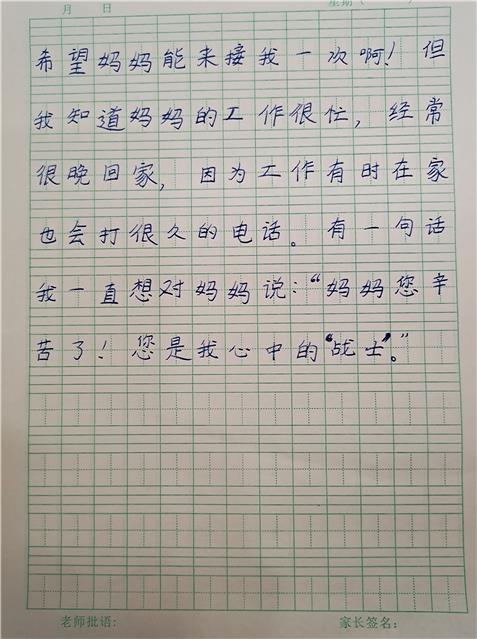 月 日 星期（ ）
希望妈妈能来接我一次啊！但
我知道妈妈的工作很忙，经常
很晚回家，因为工作有时在家
也会打很久的电话。有一句话
我一直想对妈妈说：“妈妈您辛
苦了！您是我心中的‘战士’。”
老师批语： 家长签名：